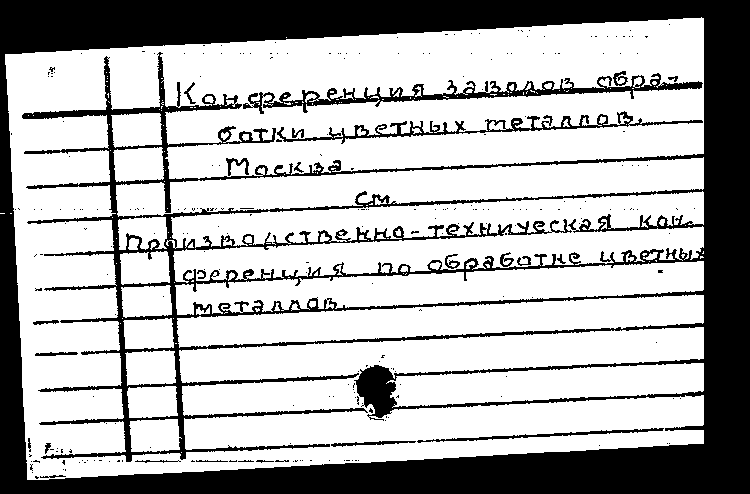 Конференция заводов обра-
ботки цветных металлов.
Москва.
см.
Производственно-техническая кон.
ференция по обработке цветных
металлов.